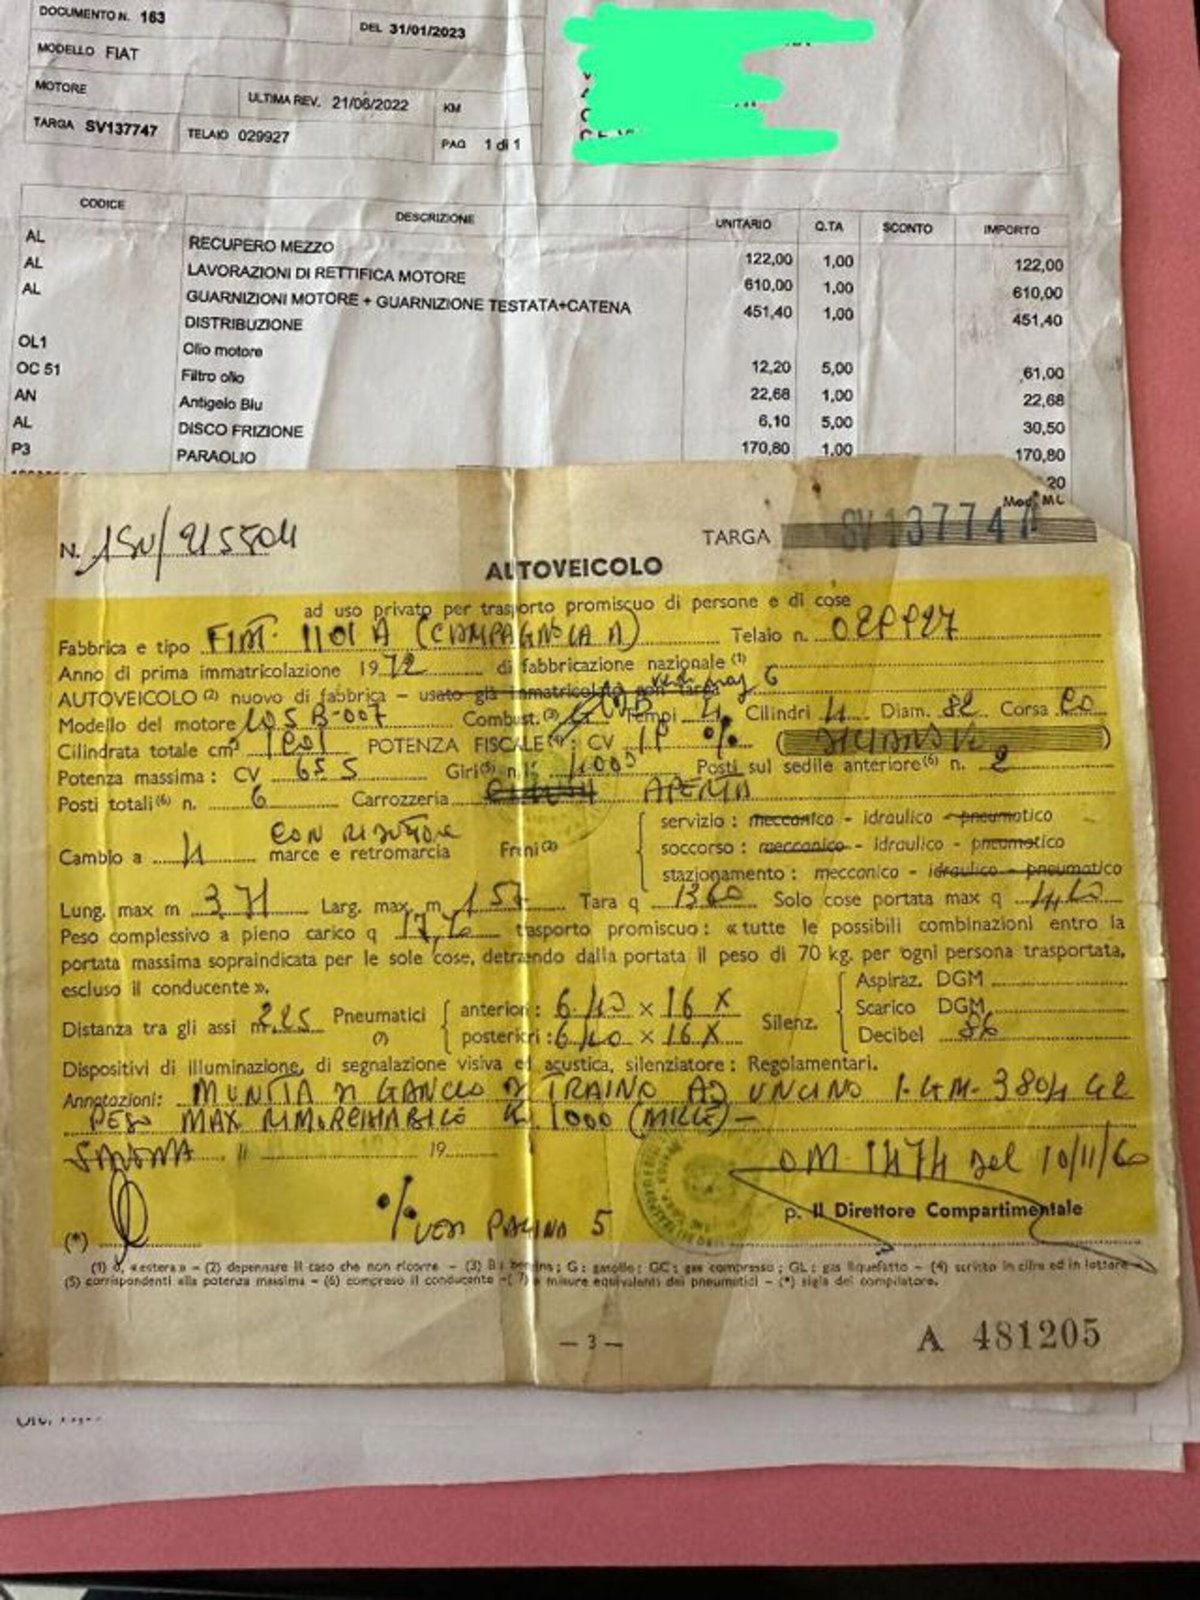 DOCUMENTO N. 163 DEL 31/01/2023
MODELLO FIAT
MOTORE ULTIMA REV. 21/06/2022 KM
TARGA SV137747 TELAIO 029927 PAG 1 di 1
CODICE DESCRIZIONE UNITARIO Q.TA SCONTO IMPORTO
AL RECUPERO MEZZO 122,00 1,00 122,00
AL LAVORAZIONI DI RETTIFICA MOTORE 610,00 1,00 610,00
AL GUARNIZIONI MOTORE + GUARNIZIONE TESTATA+CATENA 451,40 1,00 451,40
DISTRIBUZIONE
OL1 Olio motore 12,20 5,00 61,00
OC 51 Filtro olio 22,68 1,00 22,68
AN Antigelo Blu 6,10 5,00 30,50
AL DISCO FRIZIONE 170,80 1,00 170,80
P3 PARAOLIO
20
Mod. MC
N. 1SV/215504 TARGA SV137747
AUTOVEICOLO
ad uso privato per trasporto promiscuo di persone e di cose
Fabbrica e tipo FIAT 1101 A (CAMPAGNOLA A) Telaio n. 029927
Anno di prima immatricolazione 1972 di fabbricazione nazionale (1)
AUTOVEICOLO (2) nuovo di fabbrica – usato già immatricolato con targa vedi pag 6
Modello del motore 105 B-007 Combust. (3) B Tempi 4 Cilindri 4 Diam. 82 Corsa 90
Cilindrata totale cm³ 1901 POTENZA FISCALE (4): CV 19 %
Potenza massima: CV 65 5 Giri (5) n. 4000 Posti sul sedile anteriore (6) n. 2
Posti totali (6) n. 6 Carrozzeria APERTA
CON RIDUTTORE
Cambio a 4 marce e retromarcia Freni (2)
servizio: meccanico - idraulico - pneumatico
soccorso: meccanico - idraulico - pneumatico
stazionamento: meccanico - idraulico - pneumatico
Lung. max m 3,71 Larg. max. m 1 57 Tara q 13 60 Solo cose portata max q 4,60
Peso complessivo a pieno carico q trasporto promiscuo: «tutte le possibili combinazioni entro la
portata massima sopraindicata per le sole cose, detraendo dalla portata il peso di 70 kg. per ogni persona trasportata,
escluso il conducente».
Distanza tra gli assi m. 2.25 Pneumatici (7) anteriori: 6.40 × 16 X
posteriori: 6.40 × 16 X
Silenz. Aspiraz. DGM
Scarico DGM
Decibel 86
Dispositivi di illuminazione, di segnalazione visiva ed acustica, silenziatore: Regolamentari.
Annotazioni: MUNITA DI GANCIO DI TRAINO AD UNCINO 1-GM-3804 G2
PESO MAX RIMORCHIABILE K 1000 (MILLE) —
SAVONA 11 19 DM 1474 del 10/11/60
p. Il Direttore Compartimentale
(*) % VEDI PAGINA 5
(1) o, «estera» – (2) depennare il caso che non ricorre – (3) B: benzina; G: gasolio; GC: gas compresso; GL: gas liquefatto – (4) scritto in cifre ed in lettere –
(5) corrispondenti alla potenza massima – (6) compreso il conducente – (7) o misure equivalenti dei pneumatici – (*) sigla del compilatore.
— 3 —
A 481205